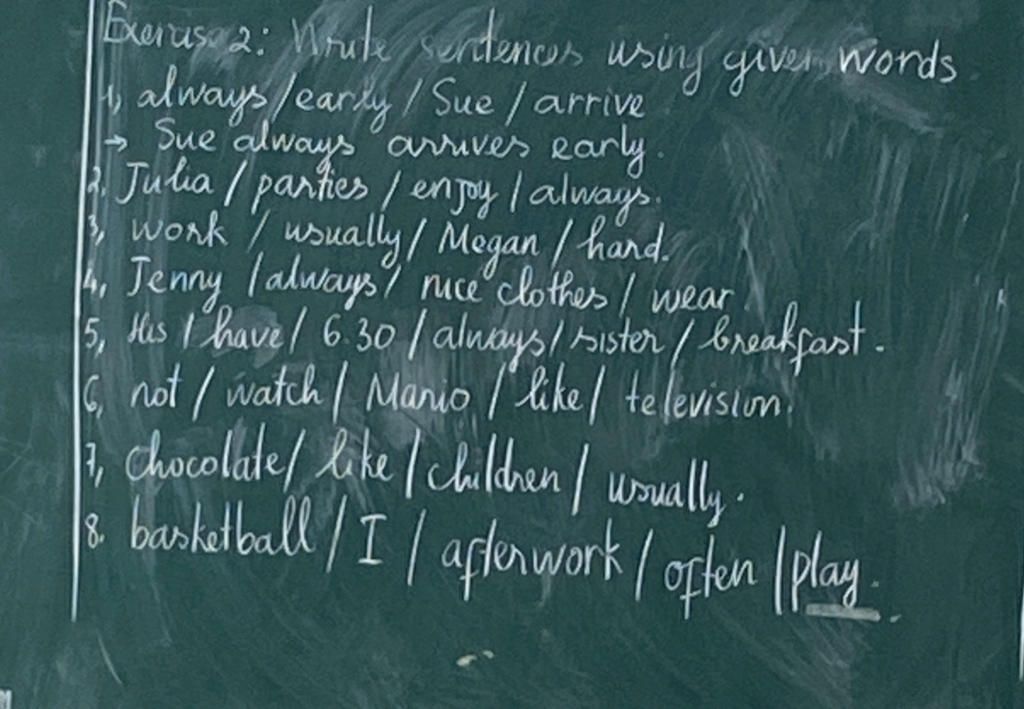 Exercise 2: Write sentences using given words
1, always / early / Sue / arrive
→ Sue always arrives early.
2, Julia / parties / enjoy / always.
3, work / usually / Megan / hard.
4, Jenny / always / nice clothes / wear
5, His / have / 6.30 / always / sister / breakfast.
6, not / watch / Mario / like / television.
7, chocolate / like / children / usually.
8. basketball / I / afterwork / often / play.